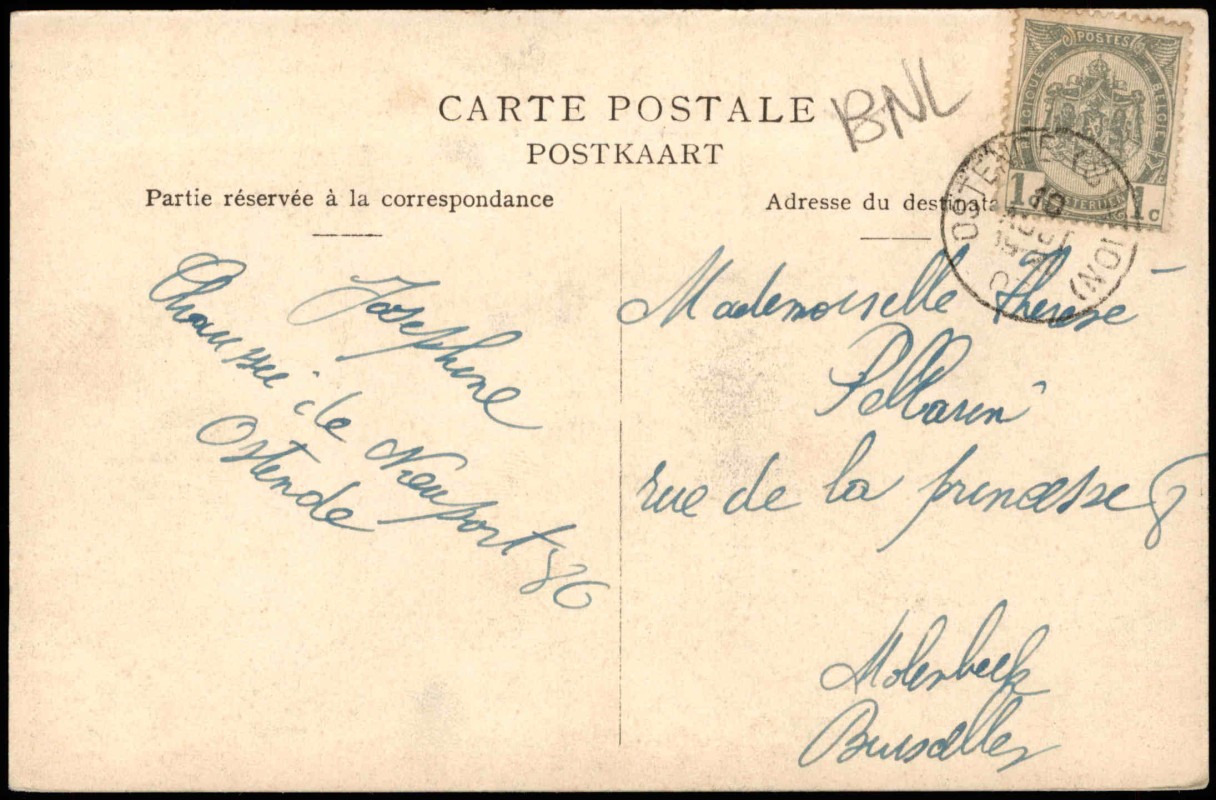 CARTE POSTALE
POSTKAART
BNL
POSTES
BELGIQUE
BELGIË
1
1c
OSTENDE
10
Partie réservée à la correspondance
Adresse du destinata
Josephine
Chaussée de Nieuport 86
Ostende
Mademoiselle Thérèse
Pellarin
rue de la princesse 8
Molenbeek
Bruxelles